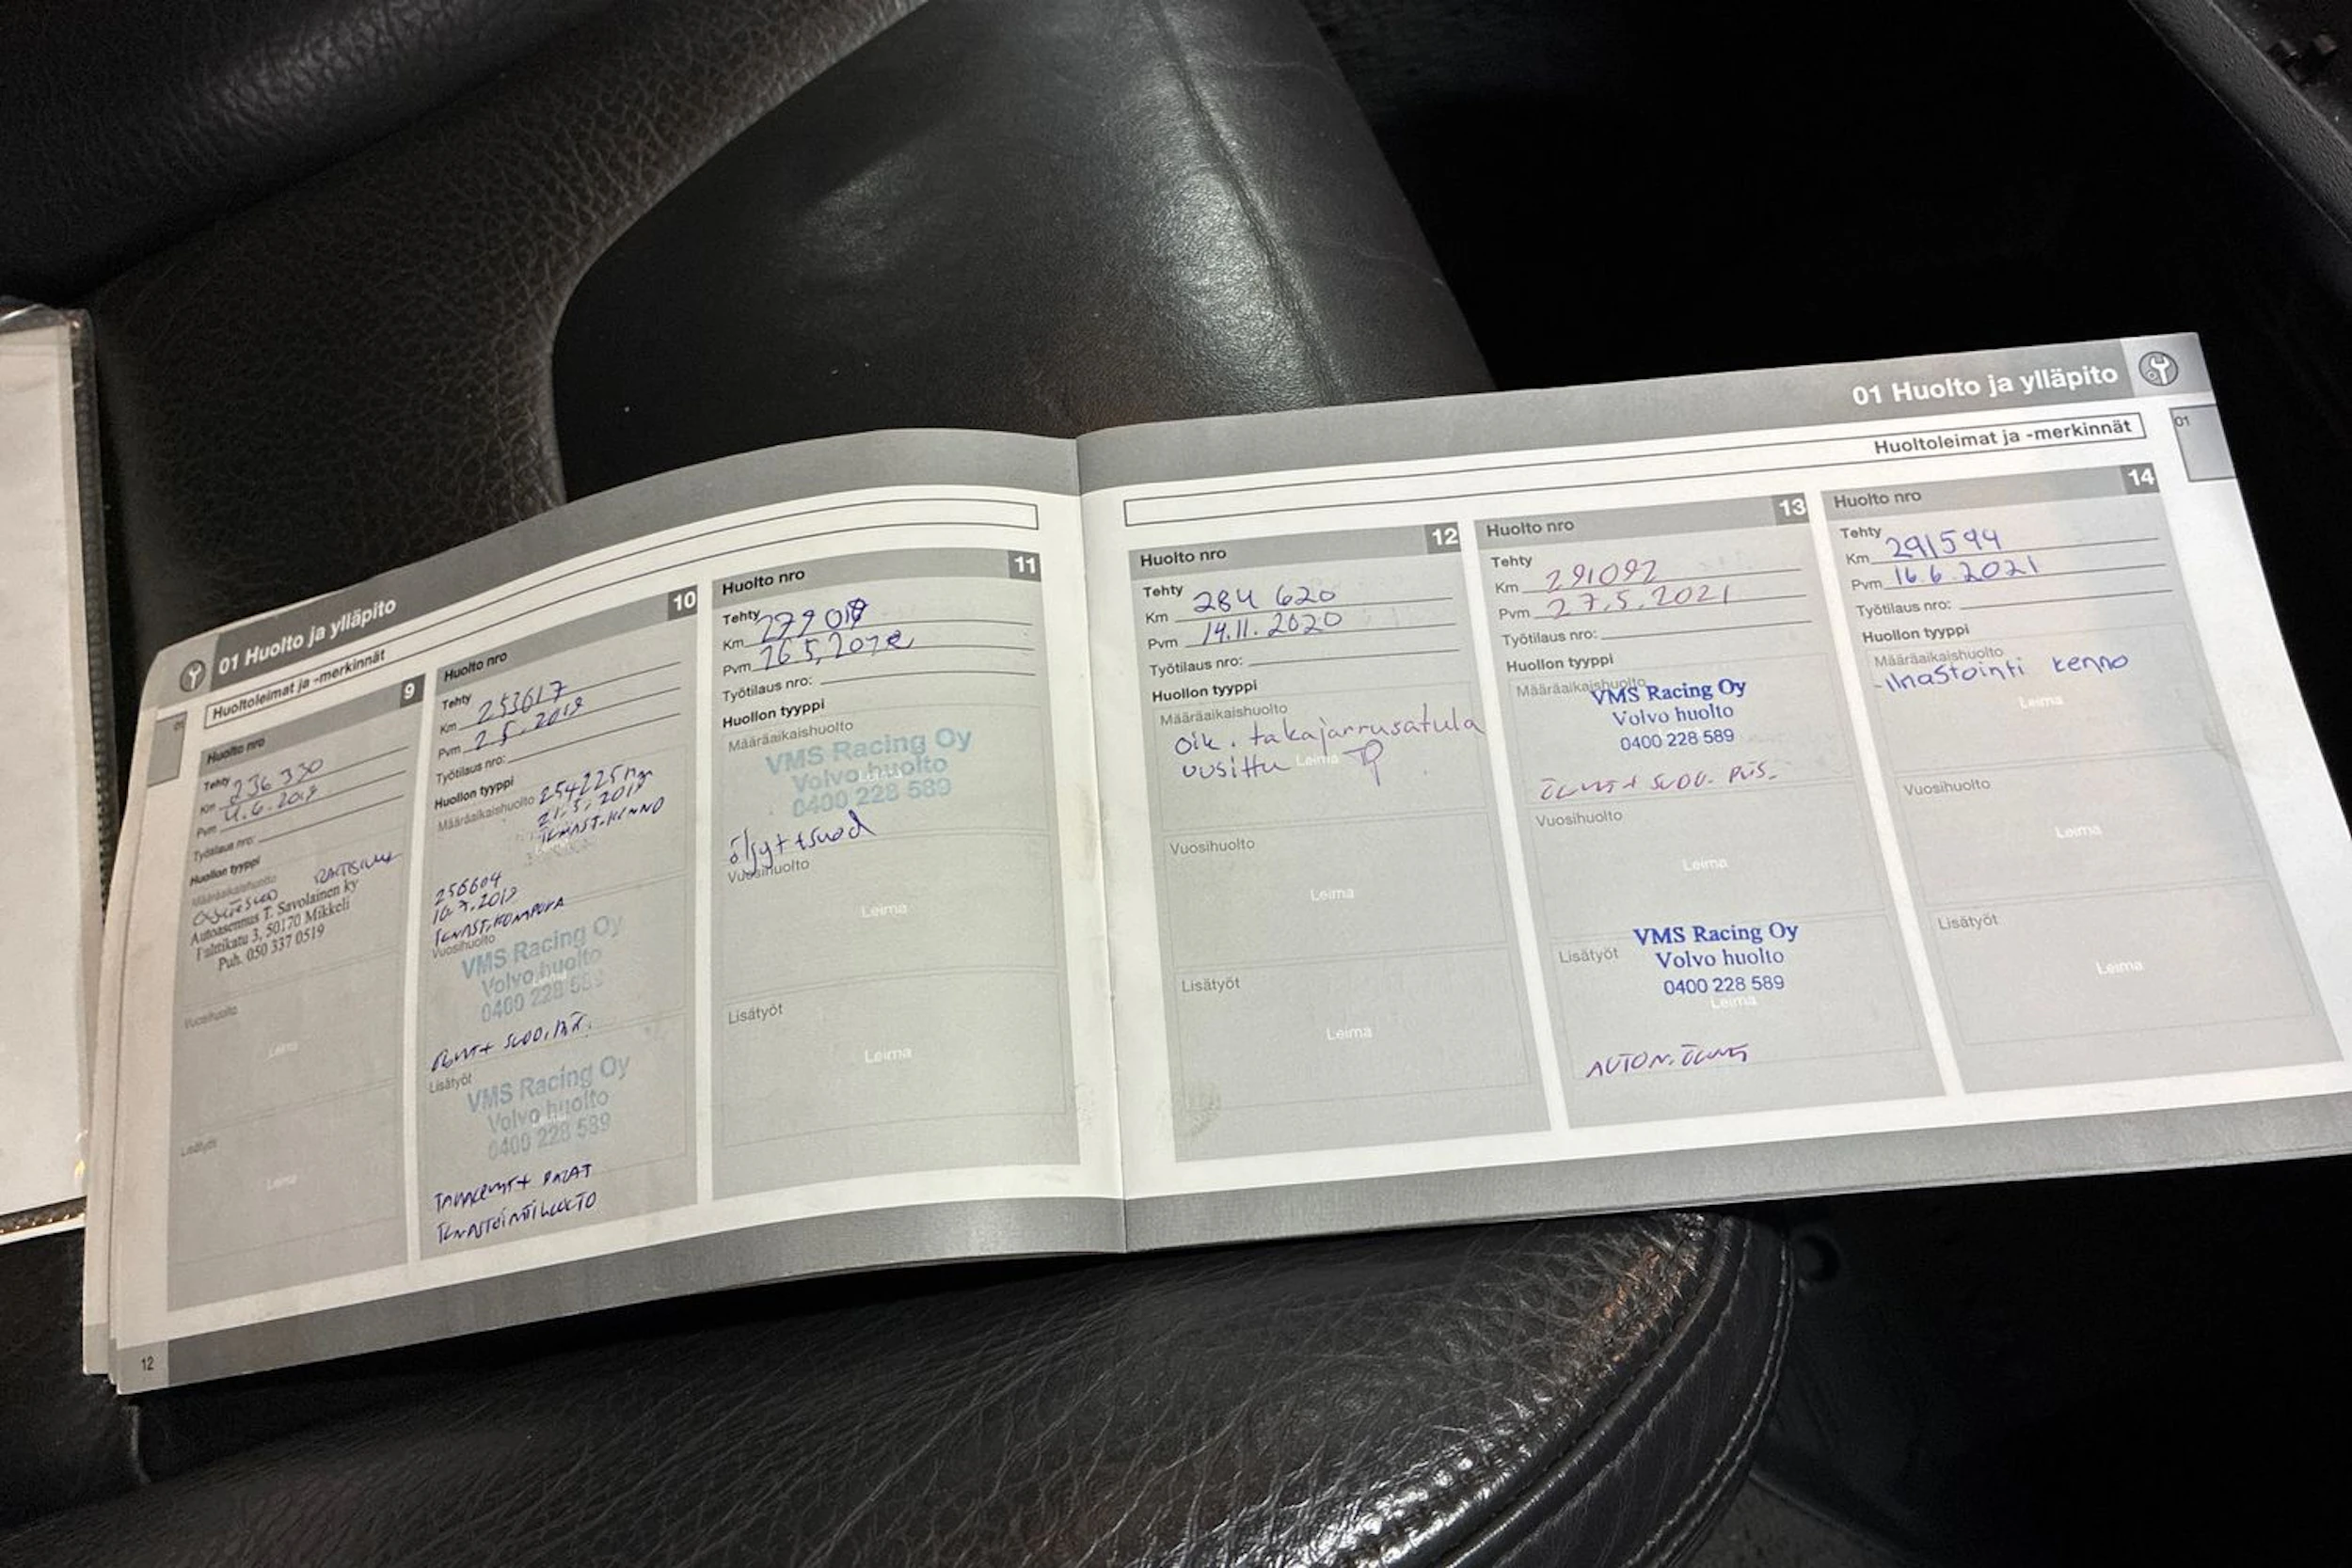 01 Huolto ja ylläpito
Huoltoleimat ja -merkinnät
01
Huolto nro 9
Tehty
Km 236 330
Pvm 4.6.2018
Työtilaus nro:
Huollon tyyppi
Määräaikaishuolto
Autoasennus T. Savolainen ky
3, 50170 Mikkeli
Puh. 050 337 0519
Vuosihuolto
Leima
Lisätyöt
Leima
Huolto nro 10
Tehty
Km 253617
Pvm 2.5.2019
Työtilaus nro:
Huollon tyyppi
Määräaikaishuolto 254225 km
21.5.2019
ILMAST.KENNO
256604
16.7.2019
ILMAST.KOMPURA
Vuosihuolto
VMS Racing Oy
Volvo huolto
0400 228 589
ÖLJYT+ SUOD.
Lisätyöt
VMS Racing Oy
Volvo huolto
0400 228 589
PALAT
ILMASTOINTIHUOLTO
12
Huolto nro 11
Tehty
Km
Pvm
Työtilaus nro:
Huollon tyyppi
Määräaikaishuolto
VMS Racing Oy
Volvo huolto
0400 228 589
öljyt+suod
Vuosihuolto
Leima
Lisätyöt
Leima
01 Huolto ja ylläpito
Huoltoleimat ja -merkinnät
01
Huolto nro 12
Tehty
Km 284 620
Pvm 14.11.2020
Työtilaus nro:
Huollon tyyppi
Määräaikaishuolto
oik. takajarrusatula
uusittu Leima
Vuosihuolto
Leima
Lisätyöt
Leima
Huolto nro 13
Tehty
Km 291092
Pvm 27.5.2021
Työtilaus nro:
Huollon tyyppi
Määräaikaishuolto
VMS Racing Oy
Volvo huolto
0400 228 589
ÖLJYT+ SUOD.
Vuosihuolto
Leima
Lisätyöt
VMS Racing Oy
Volvo huolto
0400 228 589
Leima
AUTOM. ÖLJYT
Huolto nro 14
Tehty
Km 291594
Pvm 16.6.2021
Työtilaus nro:
Huollon tyyppi
Määräaikaishuolto
-ilmastointi kenno
Leima
Vuosihuolto
Leima
Lisätyöt
Leima